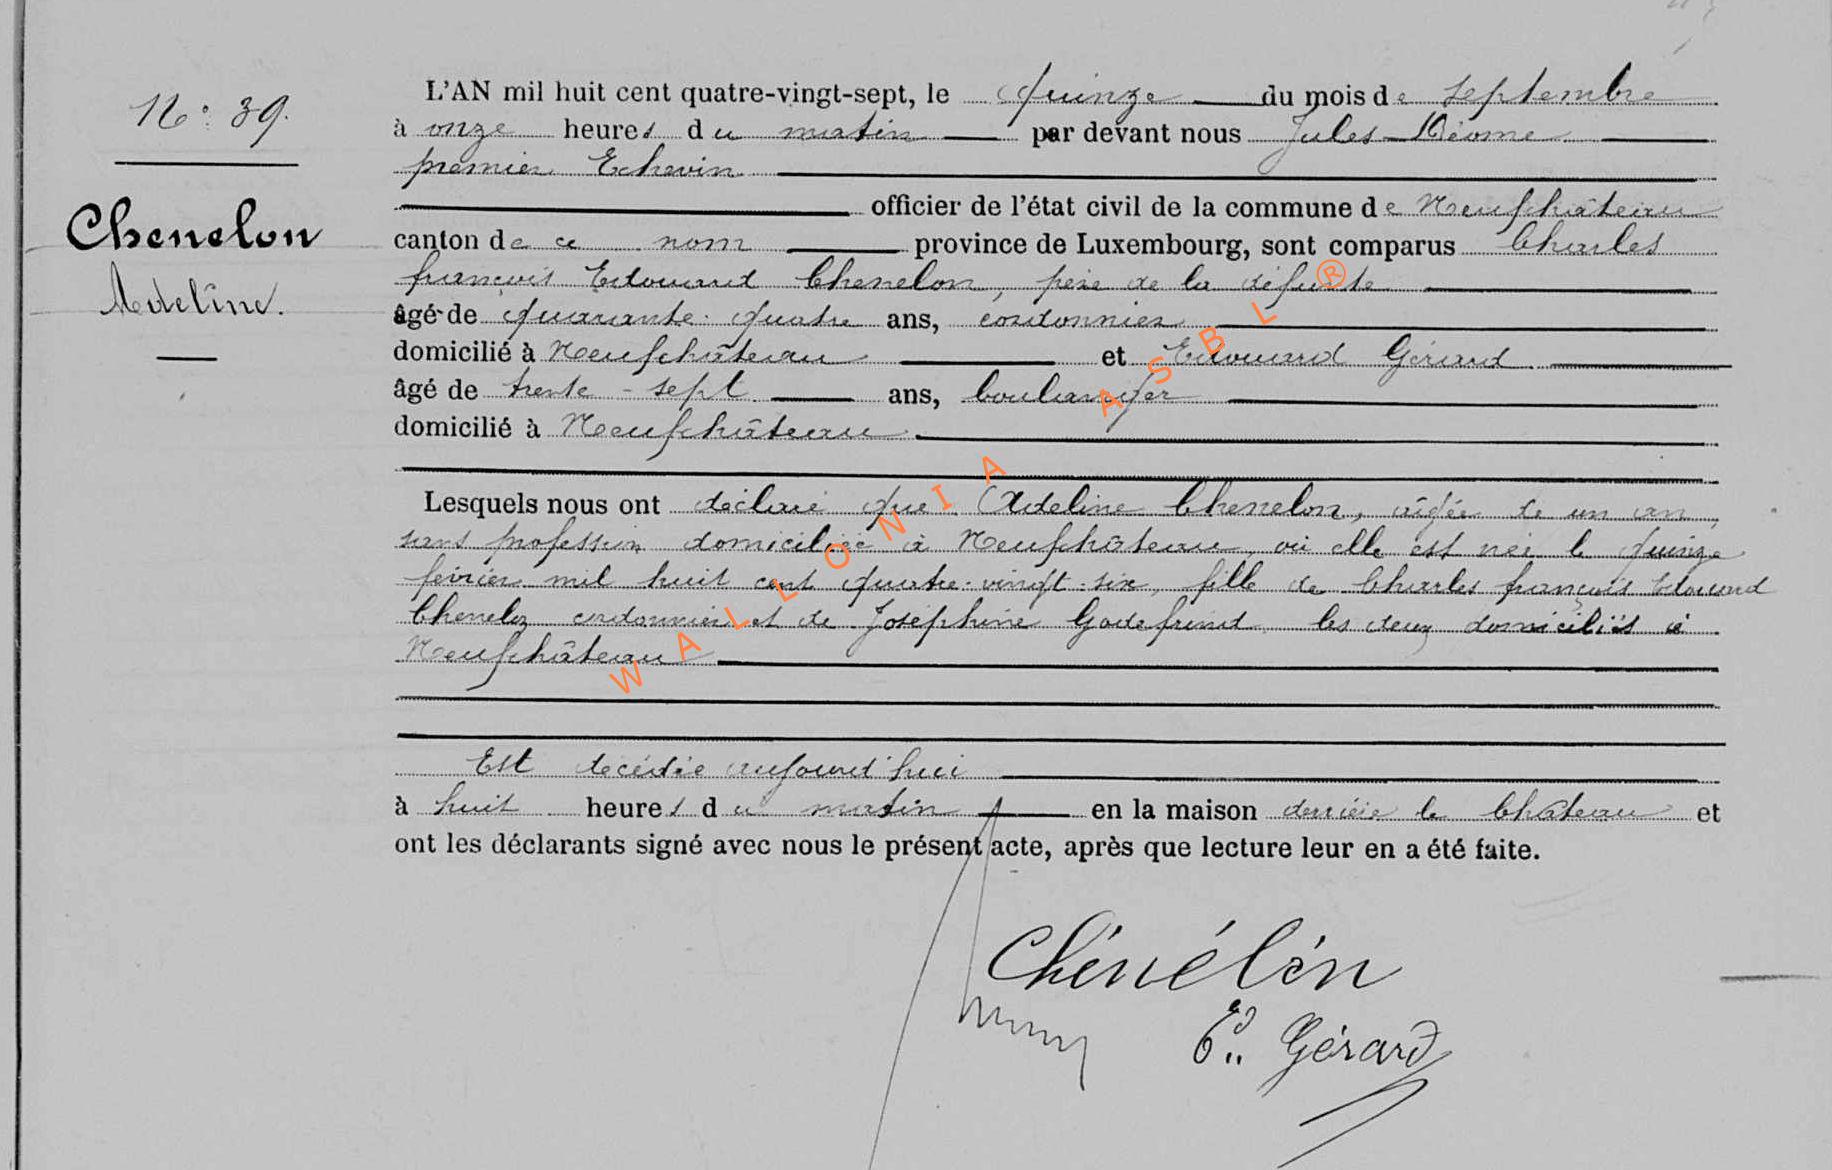 N° 39.
Chenelon
Adeline.
L'AN mil huit cent quatre-vingt-sept, le quinze du mois de septembre
à onze heures du matin par devant nous Jules
premier Echevin
officier de l'état civil de la commune de Neufchâteau
canton de ce nom province de Luxembourg, sont comparus Charles
françois Edouard Chenelon, père de la défunte
âgé de quarante-quatre ans, cordonnier
domicilié à Neufchâteau et Edouard Gérard
âgé de trente-sept ans, boulanger
domicilié à Neufchâteau
Lesquels nous ont déclaré que Adeline Chenelon, âgée de un an,
sans profession domiciliée à Neufchâteau, où elle est née le quinze
février mil huit cent quatre-vingt-six, fille de Charles françois Edouard
Chenelon cordonnier et de Joséphine Godefrind les deux domiciliés à
Neufchâteau
Est décédée aujourd'hui
à huit heures du matin en la maison derrière le Château et
ont les déclarants signé avec nous le présent acte, après que lecture leur en a été faite.
Chénélon
Ed. Gérard
WALLONIA ASBL ®